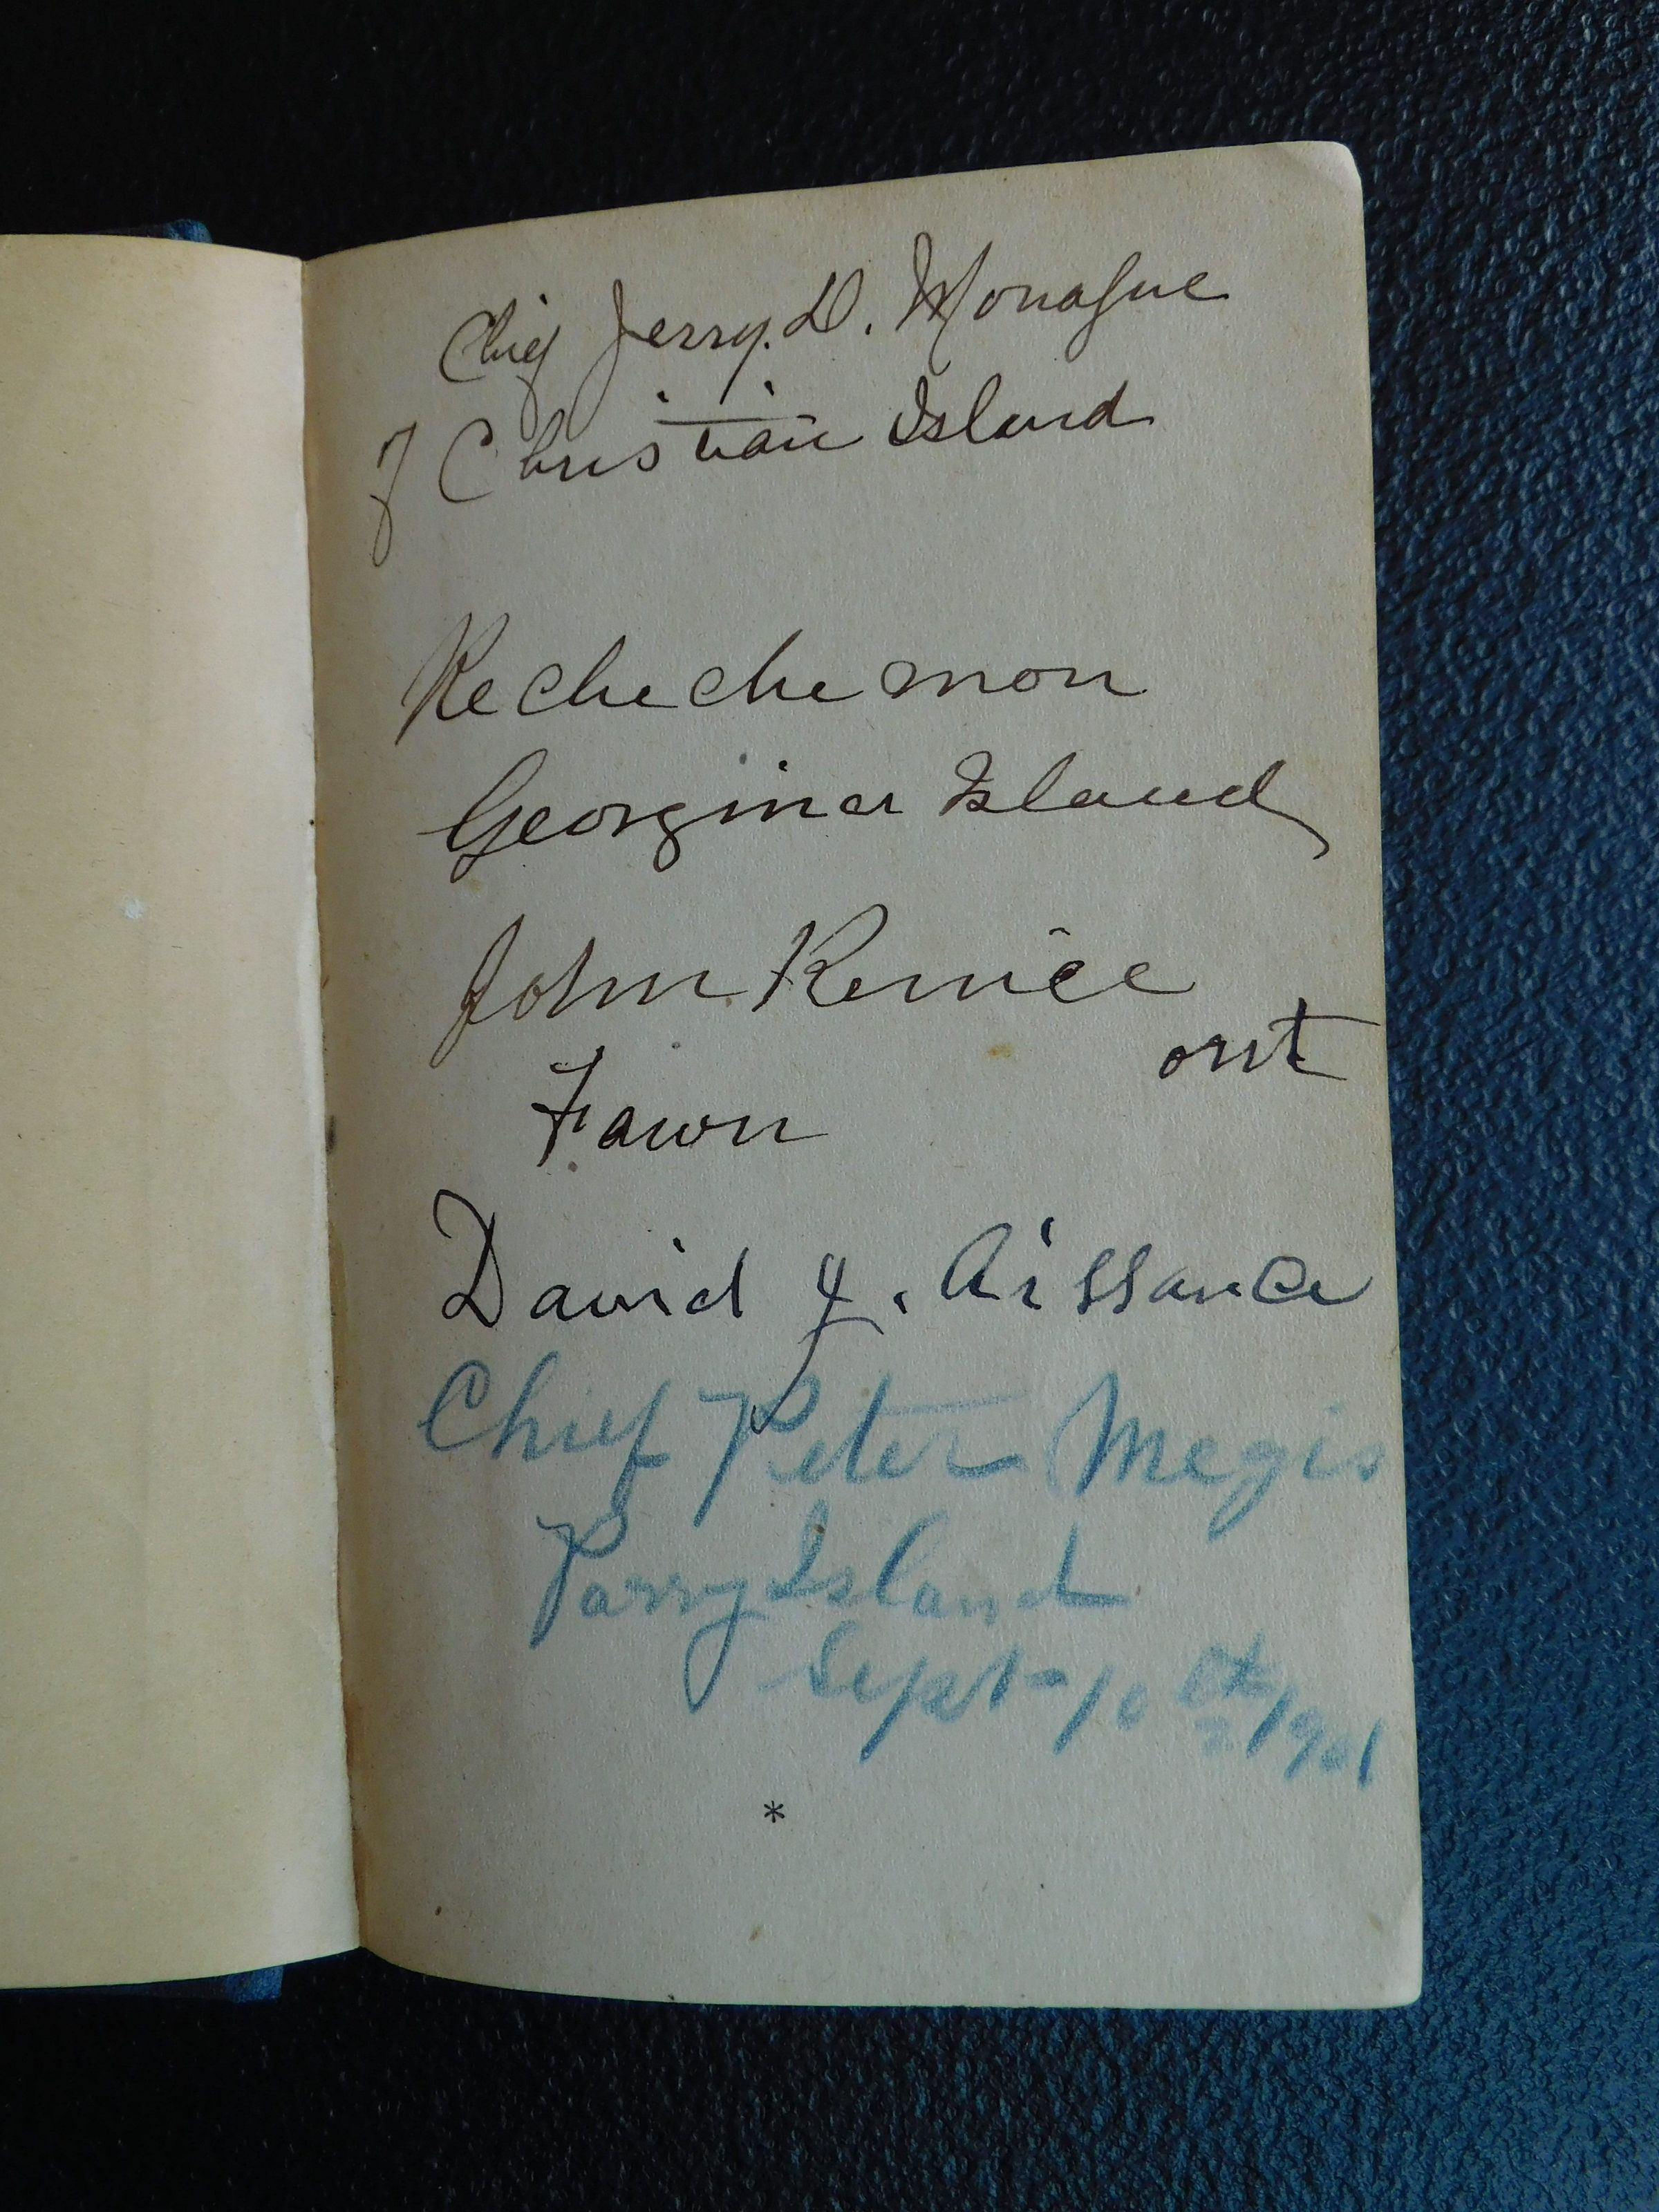 Chief Jerry. D. Monague
of Christian Island
Kechechemon
Georgina Island
John Kenice
ont
Fawn
David J. Aissance
Chief Peter Megis
Parry Island
Sept 10th 1901
*